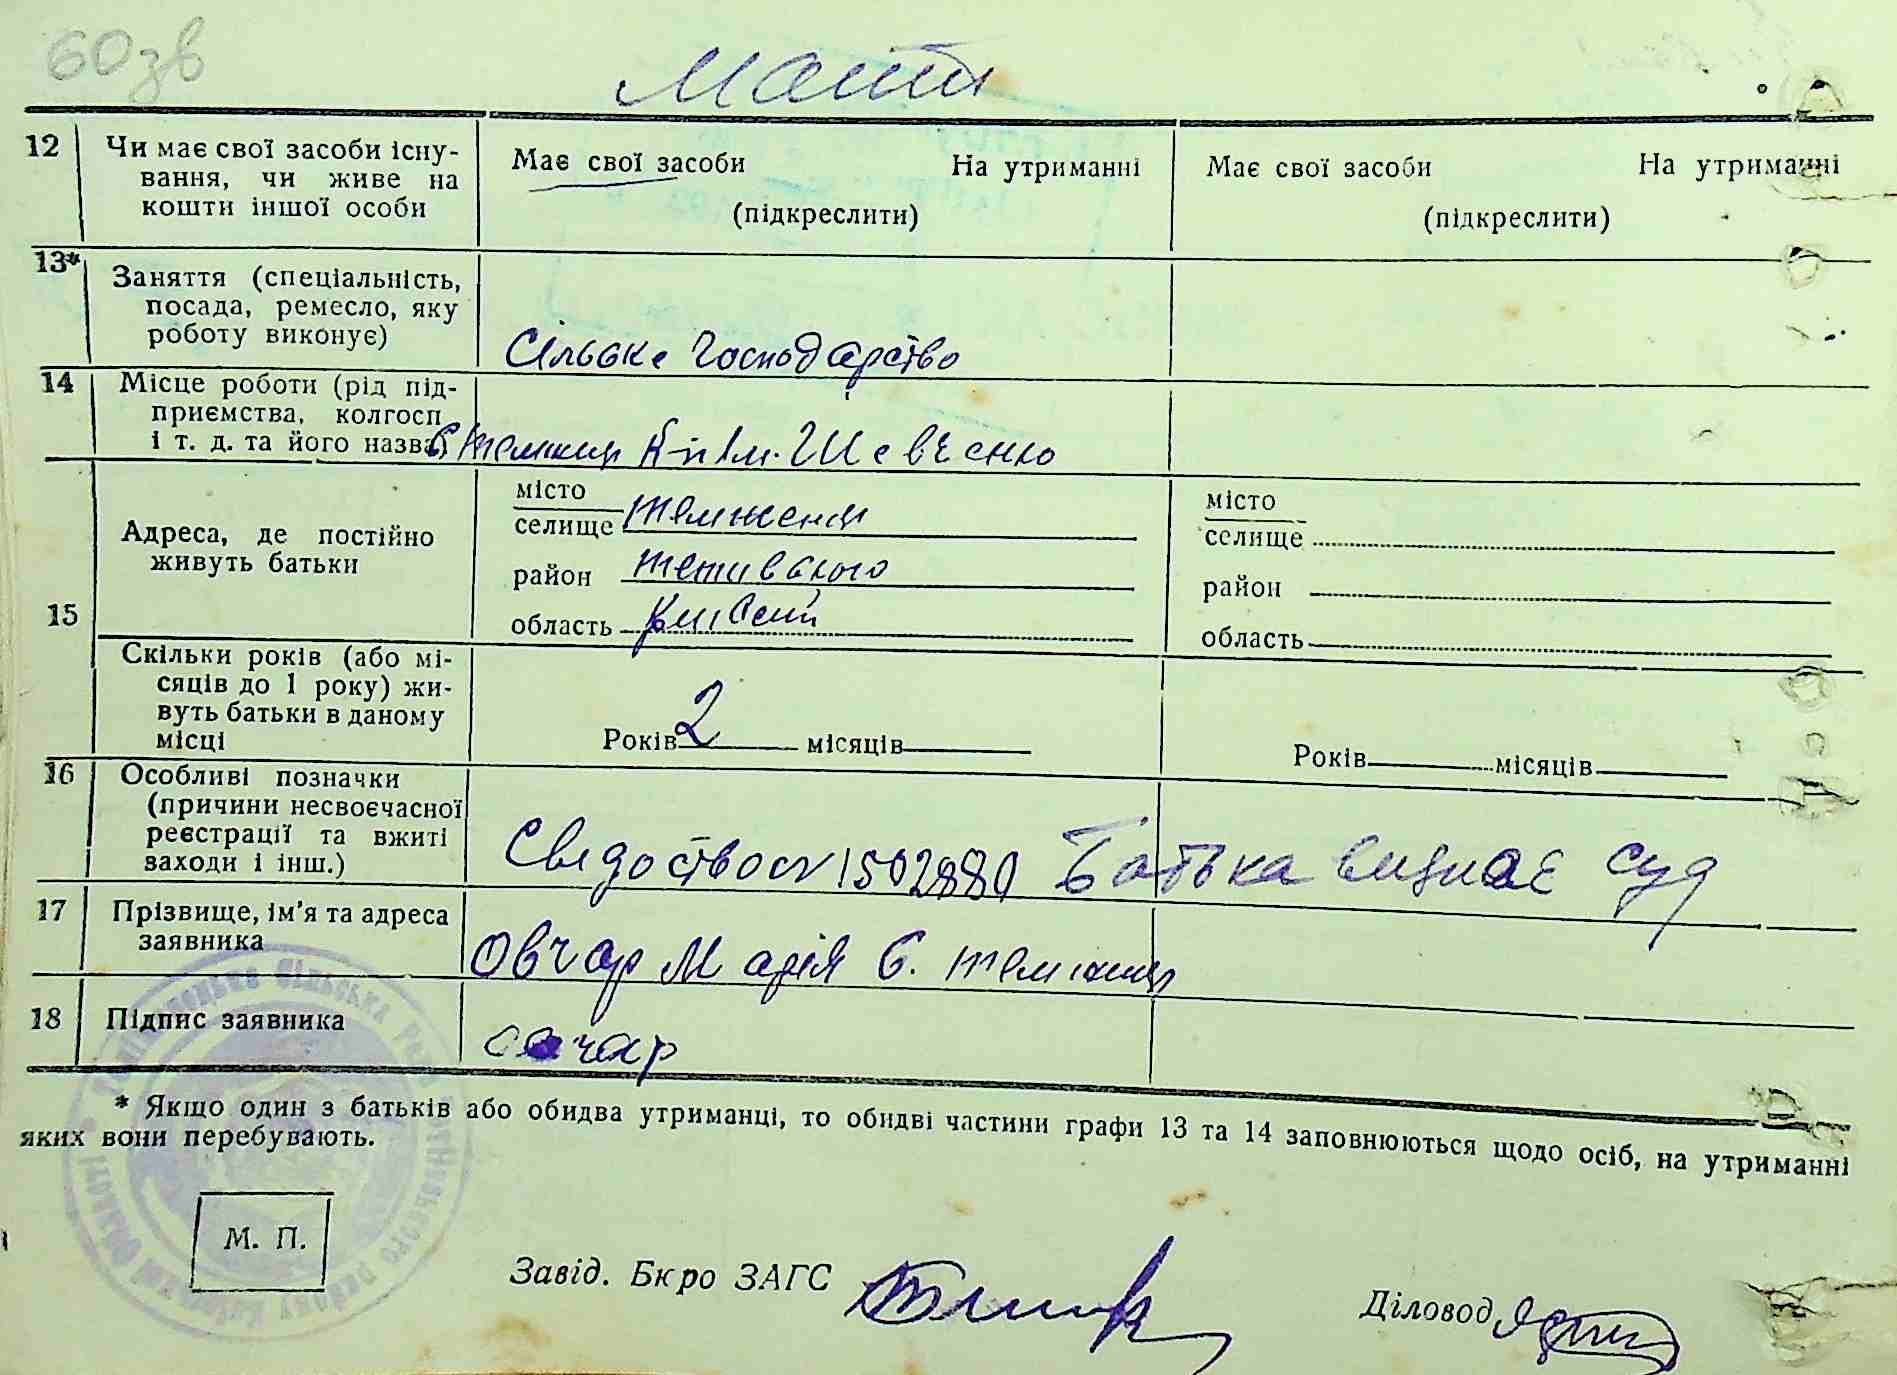 60зв
мати
12 Чи має свої засоби існу-
вання, чи живе на
кошти іншої особи
Має свої засоби На утриманні
(підкреслити)
Має свої засоби На утриманні
(підкреслити)
13* Заняття (спеціальність,
посада, ремесло, яку
роботу виконує)
Сільське господарство
14 Місце роботи (рід під-
приємства, колгосп
і т. д. та його назва)
К-п ім. Шевченко
15 Адреса, де постійно
живуть батьки
місто
селище
район тетивського
область
місто
селище
район
область
Скільки років (або мі-
сяців до 1 року) жи-
вуть батьки в даному
місці
Років 2 місяців
Років місяців
16 Особливі позначки
(причини несвоєчасної
реєстрації та вжиті
заходи і інш.)
Батька визнає суд
17 Прізвище, ім'я та адреса
заявника
Овчар Марія Є.
18 Підпис заявника
овчар
* Якщо один з батьків або обидва утриманці, то обидві частини графи 13 та 14 заповнюються щодо осіб, на утриманні
яких вони перебувають.
М. П.
Завід. Бюро ЗАГС
Діловод